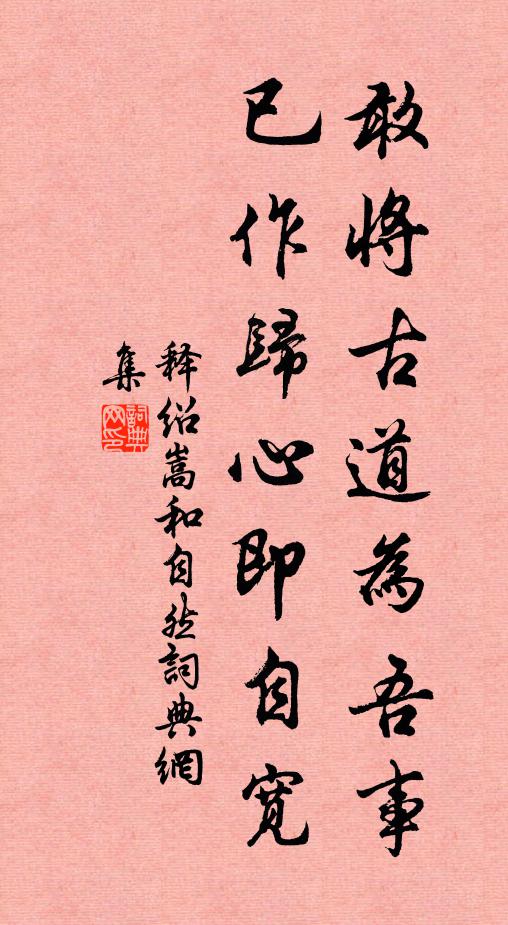 敢將古道為吾事
已作歸心即自寬
释紹嵩和自然詞典網
集
詞典網印